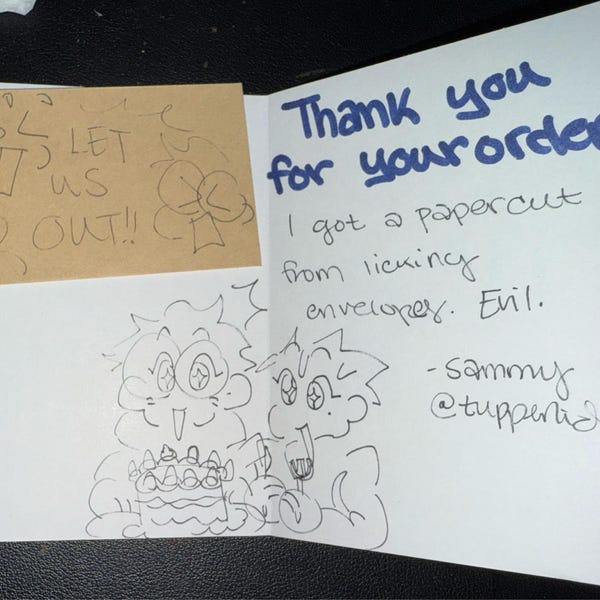 LET
US
OUT!!
Thank you
for your order
I got a papercut
from licking
envelopes. Evil.
-Sammy
@tupperlid